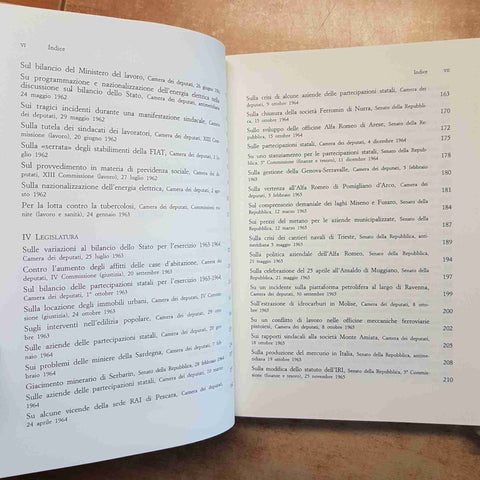 VI Indice
Sul bilancio del Ministero del lavoro, Camera dei deputati, 26 giugno
Su programmazione e nazionalizzazione dell'energia elettrica nella
discussione sul bilancio dello Stato, Camera dei deputati, antimeridiana
24 maggio 1962
Sui tragici incidenti durante una manifestazione sindacale, Camera
dei deputati, 29 maggio 1962
Sulla tutela dei sindacati dei lavoratori, Camera dei deputati, XIII Com-
missione, 20 giugno 1962
Sulla «serrata» degli stabilimenti della FIAT, Camera dei deputati,
glio 1962
Sul provvedimento in materia di previdenza sociale, Camera dei de-
putati, XIII Commissione (lavoro), 27 luglio 1962
Sulla nazionalizzazione dell'energia elettrica, Camera dei deputati, 2 ago-
sto 1962
Per la lotta contro la tubercolosi, Camera dei deputati,
ne (lavoro e sanità), 24 gennaio 1963
IV LEGISLATURA
Sulle variazioni al bilancio dello Stato per l'esercizio 1963-1964,
Camera dei deputati, 25 luglio 1963
Contro l'aumento degli affitti delle case d'abitazione, Camera dei
deputati, IV Commissione (giustizia), 20 settembre 1963
Sul bilancio delle partecipazioni statali per l'esercizio 1963-1964,
Camera dei deputati, 1° ottobre 1963
Sulla locazione degli immobili urbani, Camera dei deputati, IV Commis-
sione (giustizia), 24 ottobre 1963
Sugli interventi nell'edilizia popolare, Camera dei deputati, 29 otto-
bre 1963
Sulle aziende delle partecipazioni statali, Camera dei deputati, 29 gen-
naio 1964
Sui problemi delle miniere della Sardegna, Camera dei deputati, 7 feb-
braio 1964
Giacimento minerario di Serbariu, Senato della Repubblica, 28 febbraio 1964
Sulle aziende delle partecipazioni statali, Camera dei deputati, 10 marzo
1964
Su alcune vicende della sede RAI di Pescara, Camera dei deputati,
24 aprile 1964
Indice VII
Sulla crisi di alcune aziende delle partecipazioni statali, Camera dei
deputati, 9 ottobre 1964 163
Sulla chiusura della società Ferromin di Nurra, Senato della Repubbli-
ca, 13 ottobre 1964 170
Sullo sviluppo delle officine Alfa Romeo di Arese, Senato della Repubbli-
ca, 15 ottobre 1964 172
Sulle partecipazioni statali, Camera dei deputati, 4 dicembre 1964 175
Su uno stanziamento per le partecipazioni statali, Senato della Repubblica,
5ª Commissione (finanze e tesoro), 11 dicembre 1964 178
Sulla gestione della Genova-Serravalle, Camera dei deputati, 5 febbraio
1965 180
Sulla vertenza all'Alfa Romeo di Pomigliano d'Arco, Camera dei
deputati, 5 febbraio 1965 181
Sul comprensorio demaniale dei laghi Miseno e Fusaro, Senato della
Repubblica, 12 marzo 1965 183
Sui prezzi del metano per le aziende municipalizzate, Senato della
Repubblica, 12 marzo 1965 187
Sulla crisi dei cantieri navali di Trieste, Senato della Repubblica, anti-
meridiana 5 maggio 1965 189
Sulla politica aziendale dell'Alfa Romeo, Senato della Repubblica,
21 maggio 1965 194
Sulla celebrazione del 25 aprile all'Ansaldo di Muggiano, Senato della
Repubblica, 21 maggio 1965 197
Su un incidente sulla piattaforma petrolifera al largo di Ravenna,
Camera dei deputati, 30 settembre 1965
Sull'estrazione di idrocarburi in Molise, Camera dei deputati, 8 otto-
bre 1965 200
Su un conflitto di lavoro nelle officine meccaniche ferroviarie
pistoiesi, Camera dei deputati, 8 ottobre 1965 202
Sui rapporti sindacali alla società Monte Amiata, Camera dei deputati,
18 ottobre 1965
Sulla produzione del mercurio in Italia, Senato della Repubblica, antimeri-
diana 19 ottobre 1965 208
Sulla modifica dello statuto dell'IRI, Senato della Repubblica, 5ª Commis-
sione (finanze e tesoro), 25 novembre 1965 210